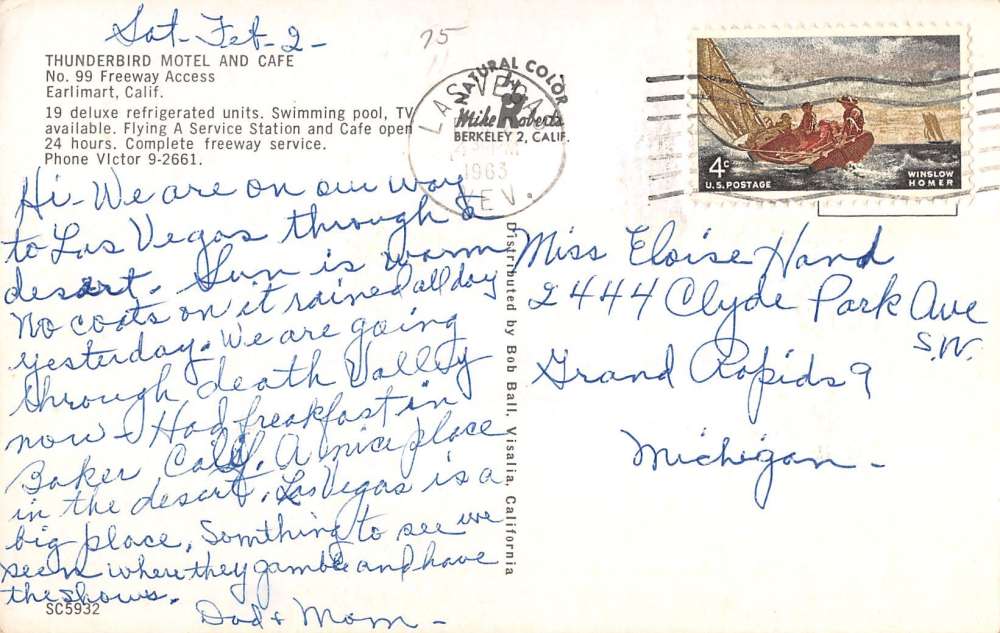 Sat-Feb-2-
75
THUNDERBIRD MOTEL AND CAFE
No. 99 Freeway Access
Earlimart, Calif.
19 deluxe refrigerated units. Swimming pool, TV
available. Flying A Service Station and Cafe open
24 hours. Complete freeway service.
Phone VIctor 9-2661.
Hi- We are on our way
to Las Vegas through a
desart. Sun is warm
No coats on it rained all day
yesterday. We are going
through death Valley
now- Had freakfast in
Baker Calif. A nice place
in the desart. Las Vegas is a
big place, Somthing to see we
seen where they gamble and have
the shows.
Dad & Mom-
SC5932
NATURAL COLOR
Mike Roberts
BERKELEY 2, CALIF.
LAS VEGAS
1963
NEV.
Distributed by Bob Ball, Visalia, California
4c
U.S. POSTAGE
WINSLOW
HOMER
Miss Eloise Hand
2444 Clyde Park Ave
S.W.
Grand Rapids 9
Michigan-